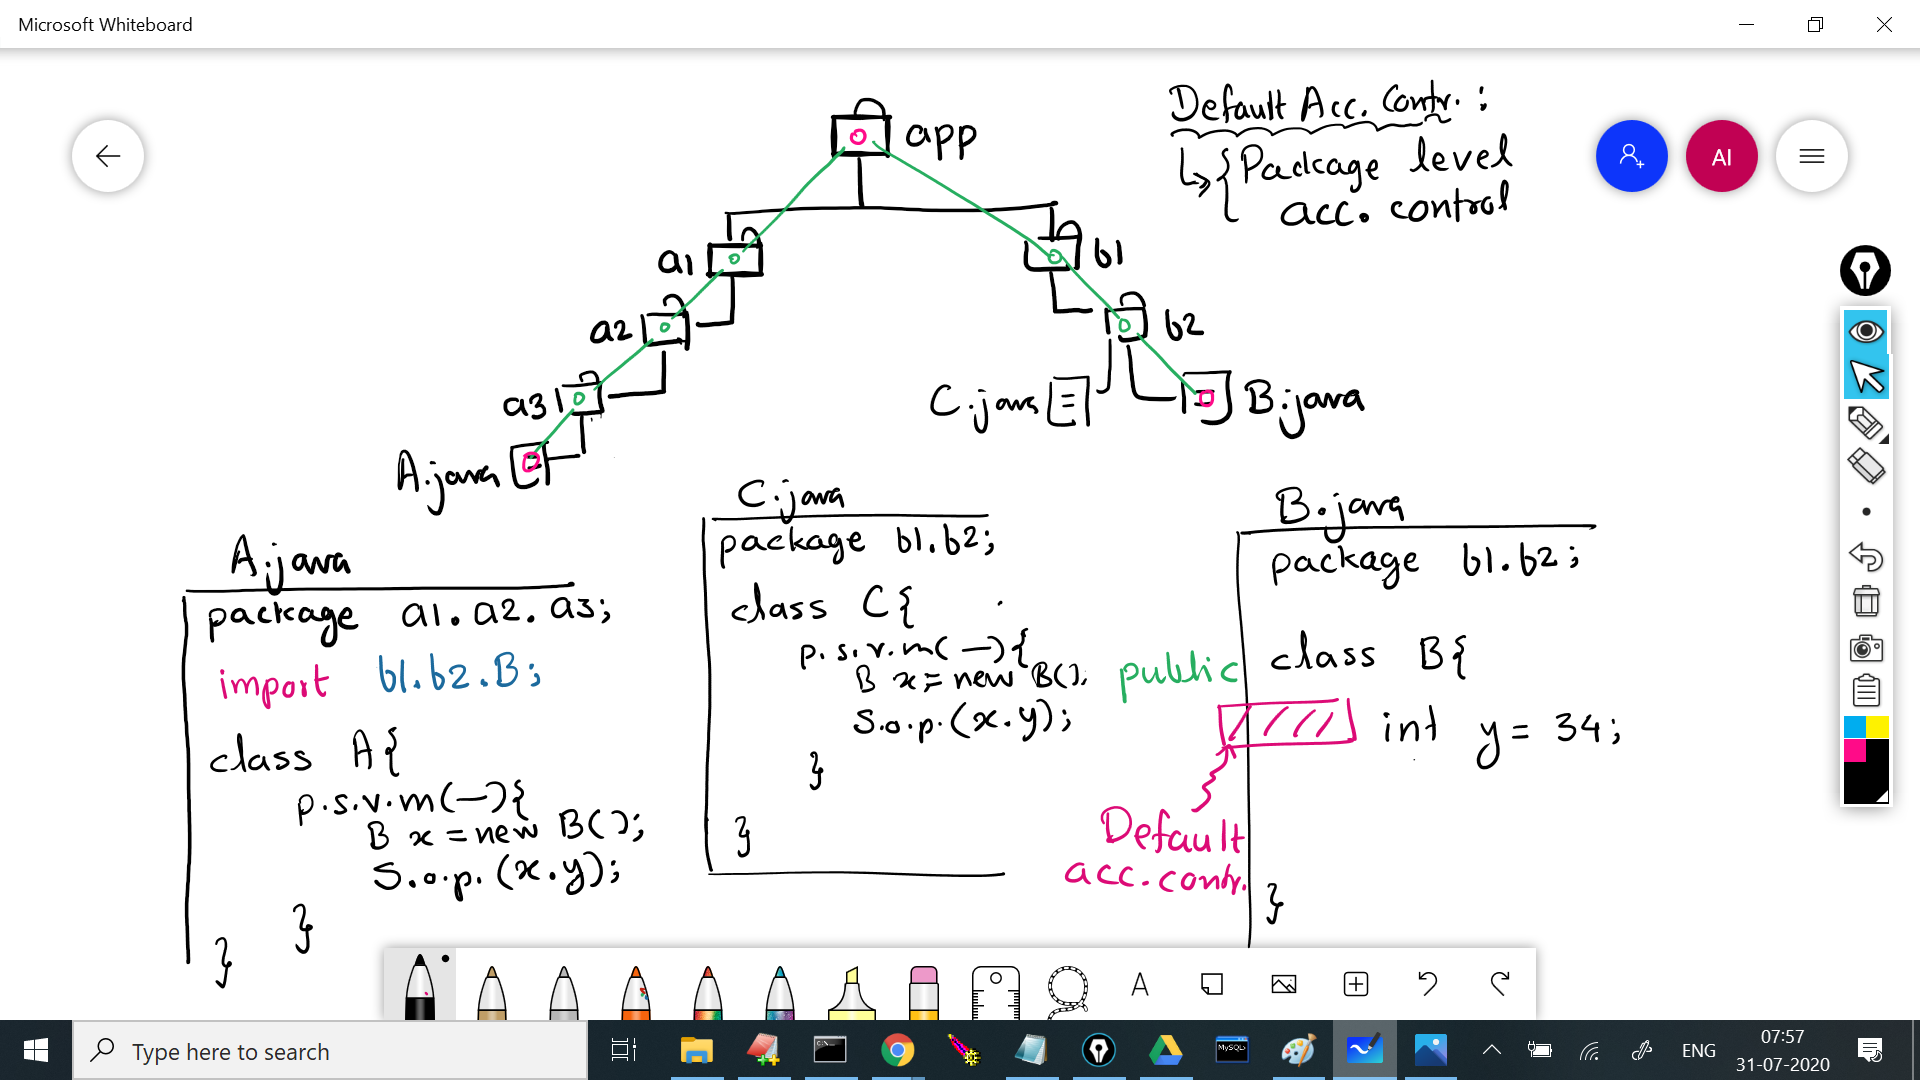 Microsoft Whiteboard
app
Default Acc. Contr. :
↳ { Package level
acc. control
AI
a1
b1
a2
b2
a3
C.java
B.java
A.java
A.java
package a1.a2.a3;
import b1.b2.B;
class A{
p.s.v.m(—){
B x = new B();
S.o.p.(x.y);
}
}
C.java
package b1.b2;
class C{
p.s.v.m(—){
B x = new B();
S.o.p.(x.y);
}
}
B.java
package b1.b2;
public class B{
int y = 34;
Default
acc.contr.
}
A
Type here to search
C:\_
MySQL
ENG
07:57
31-07-2020